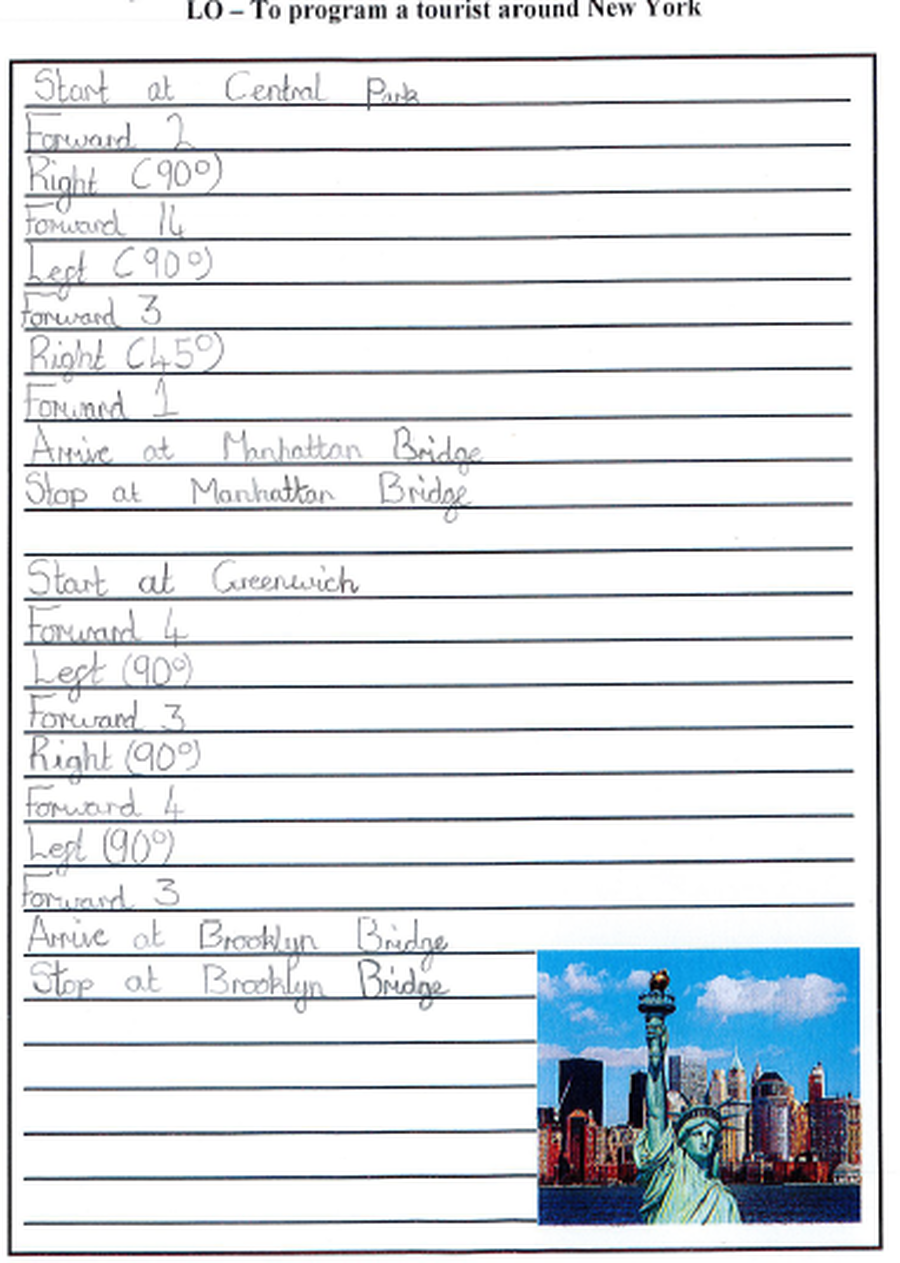 LO – To program a tourist around New York
Start at Central Park
Forward 2
Right (90°)
Forward 14
Left (90°)
Forward 3
Right (45°)
Forward 1
Arrive at Manhattan Bridge
Stop at Manhattan Bridge
Start at Greenwich
Forward 4
Left (90°)
Forward 3
Right (90°)
Forward 4
Left (90°)
Forward 3
Arrive at Brooklyn Bridge
Stop at Brooklyn Bridge